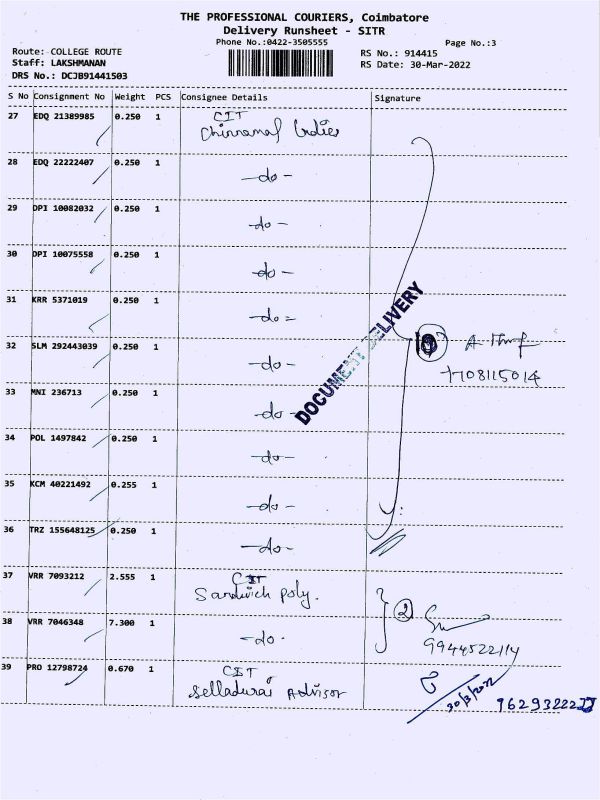 THE PROFESSIONAL COURIERS, Coimbatore
Delivery Runsheet - SITR
Phone No.:0422-3505555
Page No.:3
Route: COLLEGE ROUTE
RS No.: 914415
Staff: LAKSHMANAN
RS Date: 30-Mar-2022
DRS No.: DCJB91441503
S No Consignment No Weight PCS Consignee Details Signature
27 EDQ 21389985 0.250 1 CIT
28 EDQ 22222407 0.250 1 -do-
29 DPI 10082032 0.250 1 do-
30 DPI 10075558 0.250 1 -do-
31 KRR 5371019 0.250 1 -do=
DOCUMENT DELIVERY
32 SLM 292443039 0.250 1 -do-
7708115014
33 MNI 236713 0.250 1 -do-
34 POL 1497842 0.250 1 -do-
35 KCM 40221492 0.255 1 -do-
36 TRZ 155648125 0.250 1 -do-
37 VRR 7093212 2.555 1 CIT
Sandwich poly.
2
38 VRR 7046348 7.300 1 -do-
9944522114
39 PRO 12798724 0.670 1 CIT
Selladurai Advisor
30/3/2022